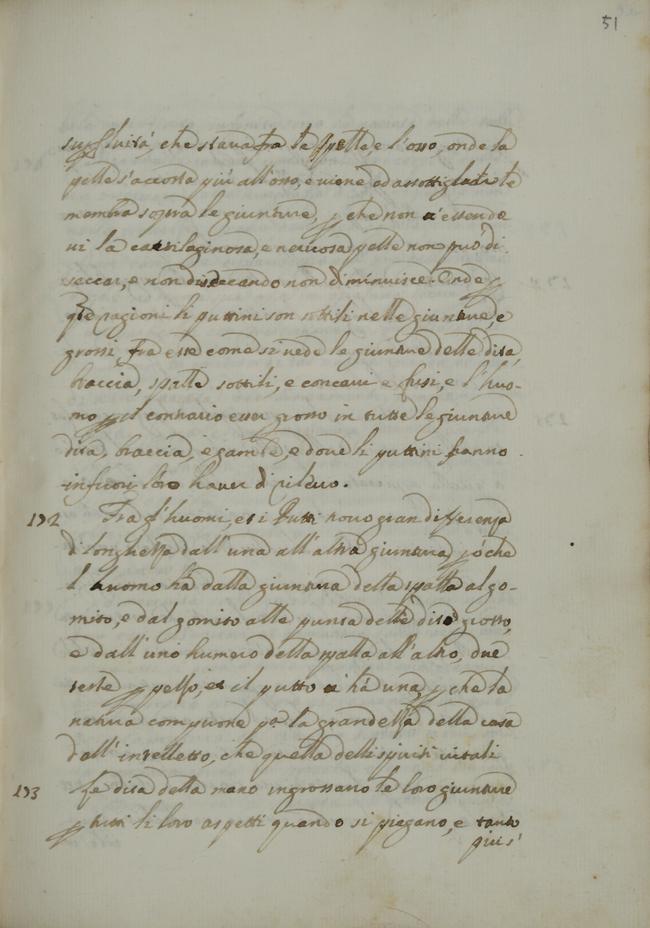 51
superfluità, che stava fra le pelle, e l'osso, onde la
pelle s'accosta più all'osso, e viene ad assottigliar le
membra sopra le giunture, p che non v'essendo
vi la cartilaginosa, e nervosa pelle non può di
seccar, e non diseccando non diminuisce. Onde p
qte ragioni li puttini son sottili nelle giunture, e
grossi, fra esse come si vede le giunture delle dita,
braccia, spalle sottili, e concavi e fusi, e l'huo-
mo p il contrario esser grosso in tutte le giunture
dita, braccia, e gambe, e dove li puttini hanno
in fuori loro haver di rilevo.
192 Fra gl'huomi, et i Putti trovo gran differenza
di longhezza dall'una all'altra giuntura pciò che
l'huomo ha dalla giuntura della spalla al go-
mito, e dal gomito alla punta delle dito grosso,
e dall'uno humero della spalla all'altro, due
teste p pezzo, et il putto n'ha una, p che la
natura compuone pa la grandezza della casa
dall'intelletto, che quella delli spiriti vitali
193 Le dita della mano ingrossano le loro giunture
p tutti li loro aspetti quando si piegano, e tanto
più s'